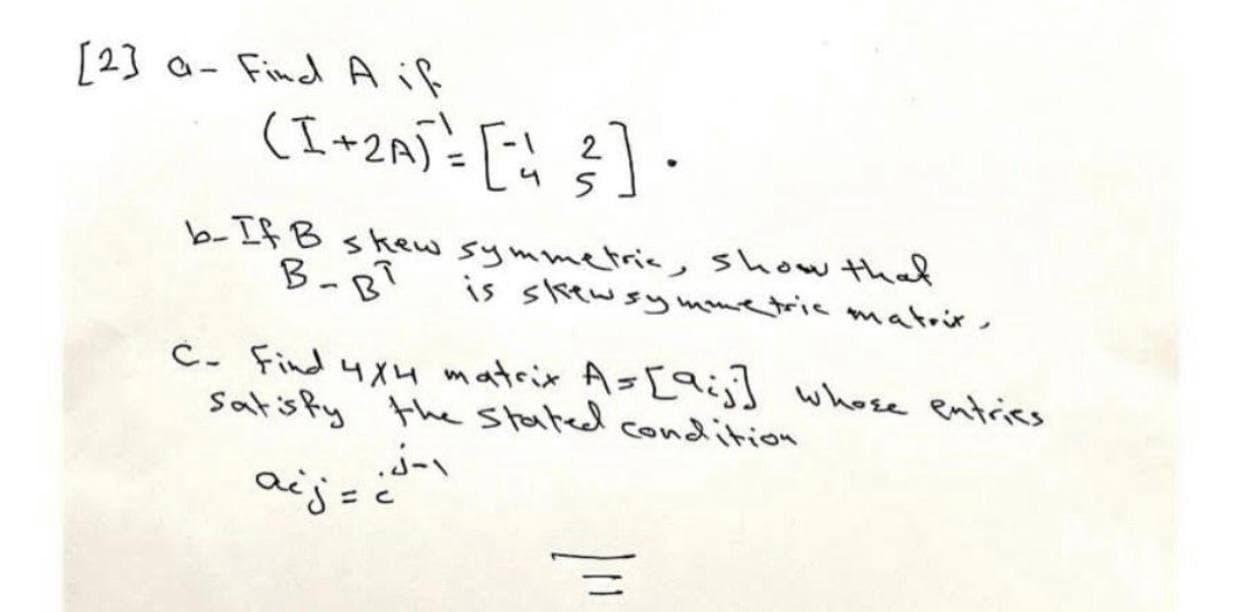 [2] a- Find A if
(I+2A)⁻¹ = [-1 2
4 5] .
b- If B skew symmetric, show that
B - Bᵀ is skew symmetric matrix.
C- Find 4x4 matrix A=[aij] whose entries
satisfy the stated condition
aij = i^j-1